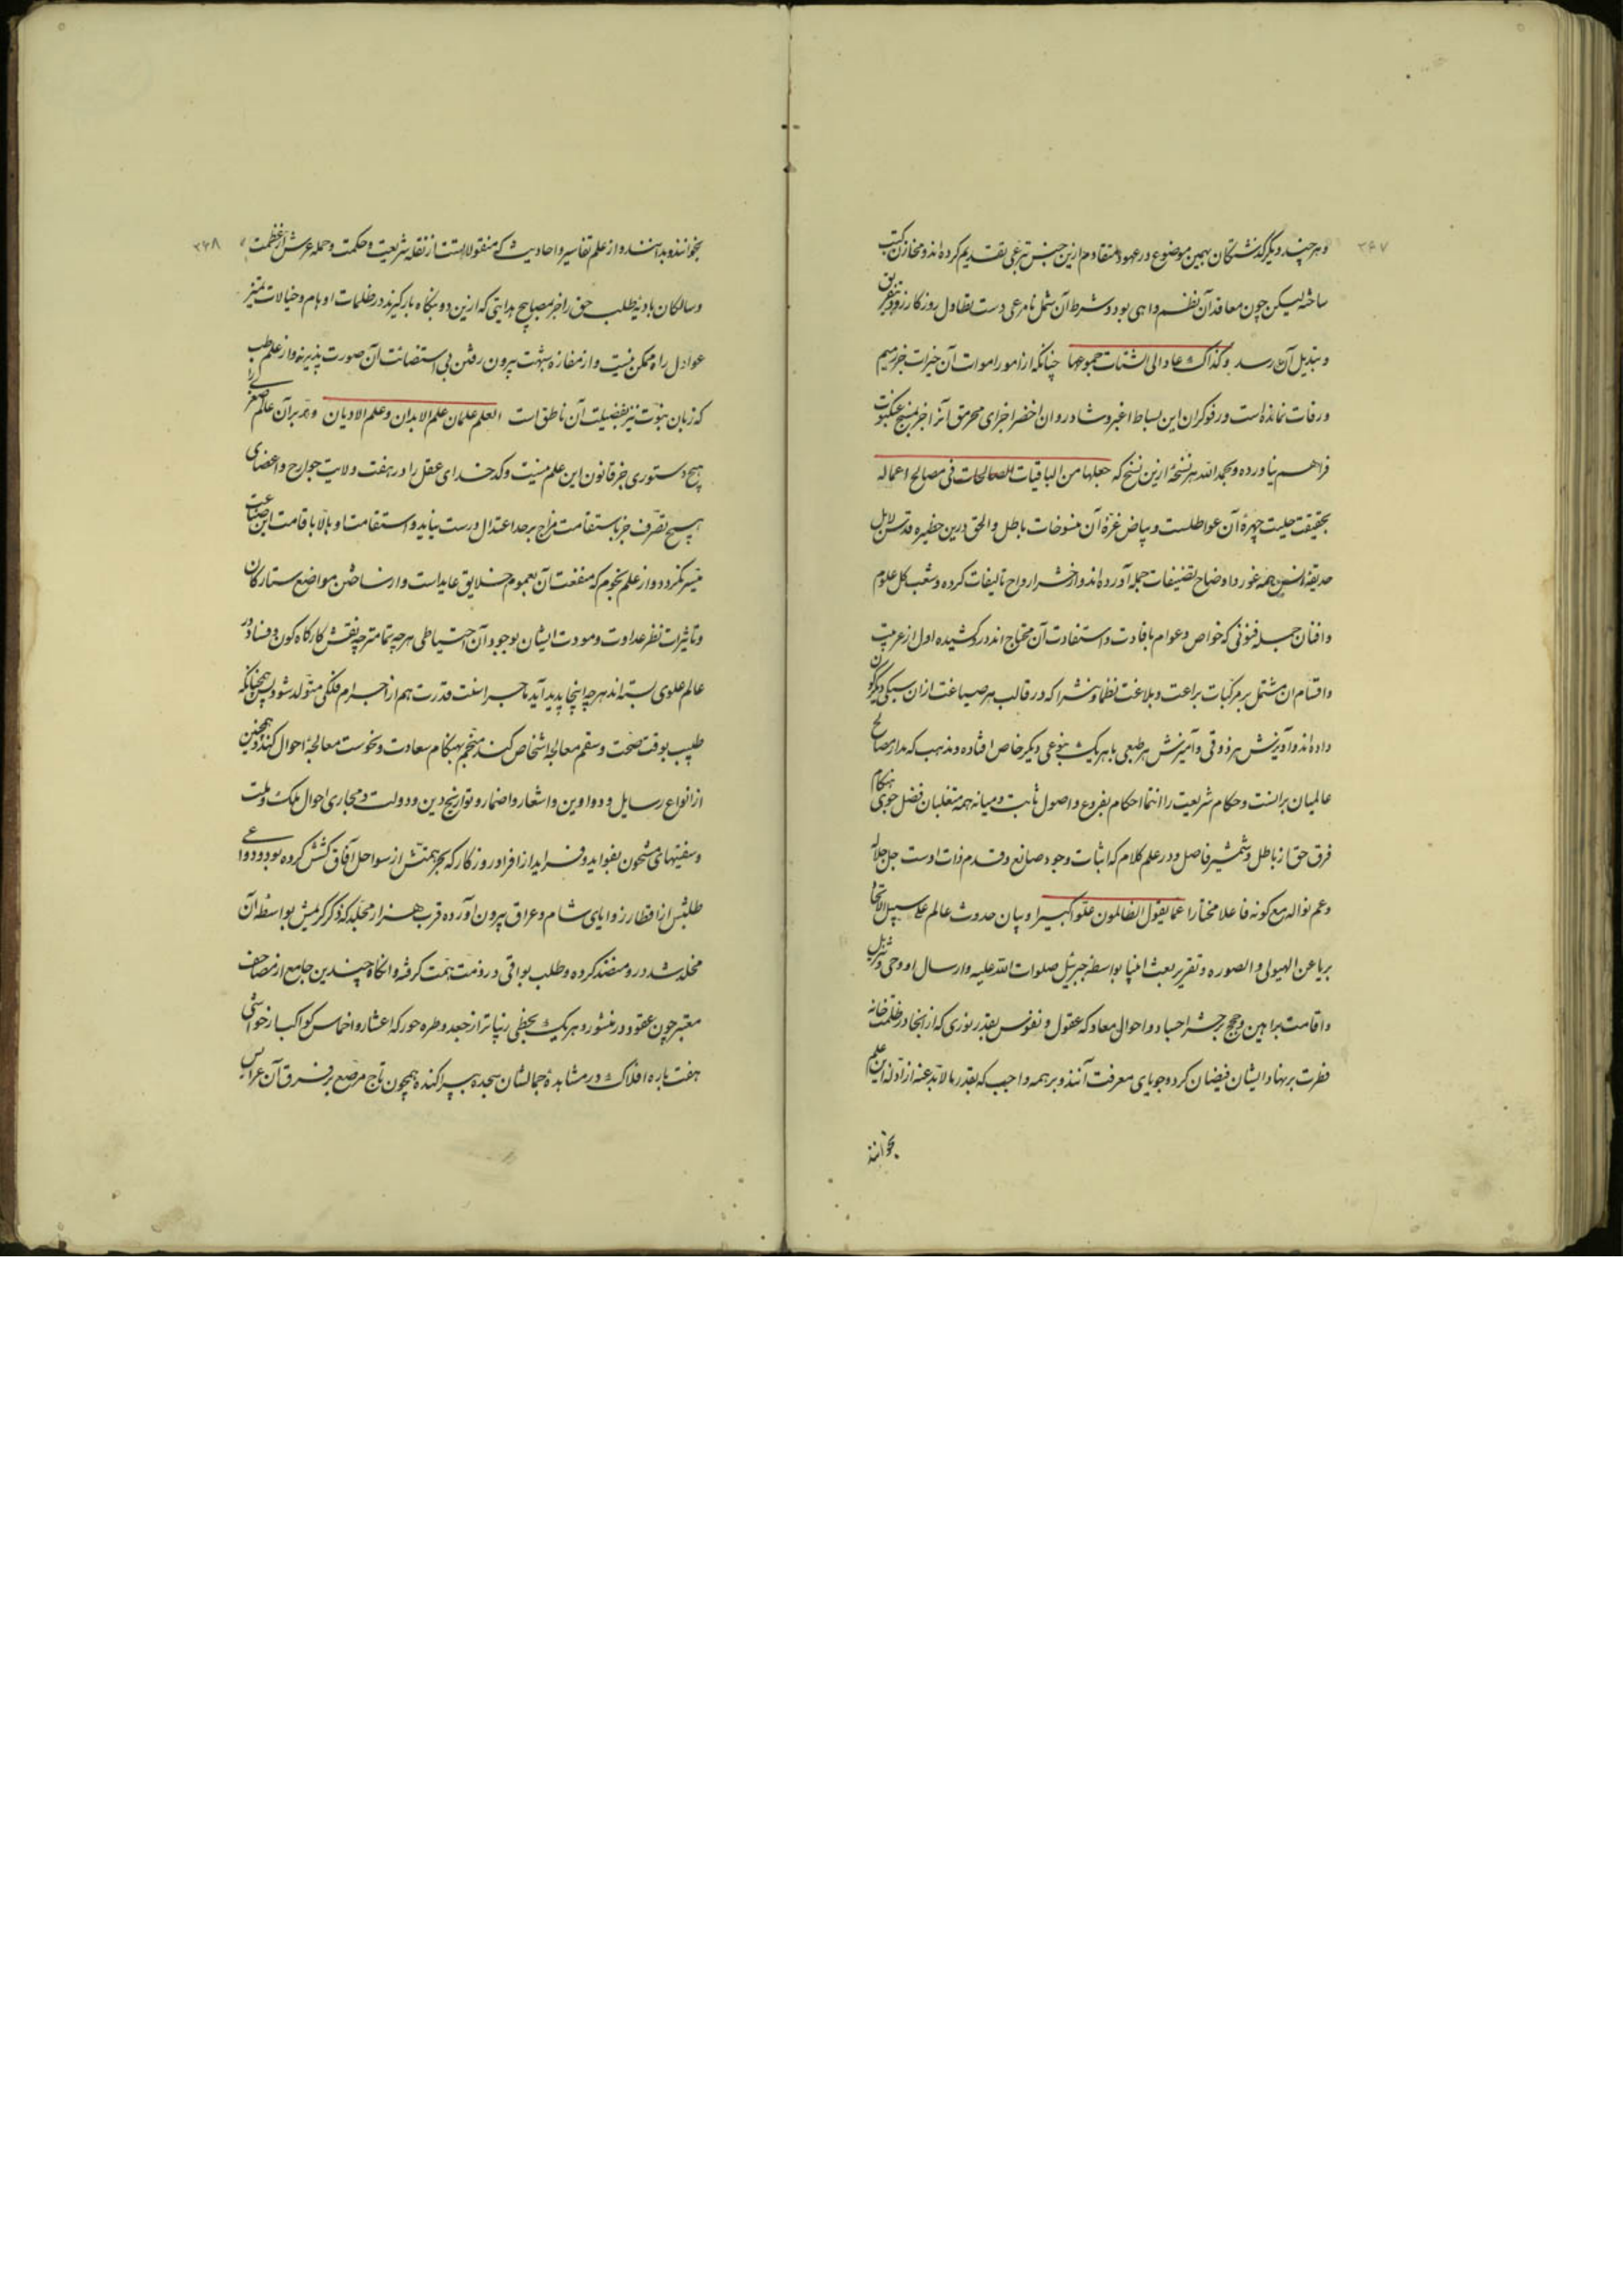 ۳۴۷
و هر چند دیگر گذشتگان بهمین موضوع در عهود متقادم ازین جنس تبرعی تقدیم کرده اند و مخازن کتب
ساخته لیکن چون معاقد آن نظم واهی بود و شرط آن شمل نامرعی دست تطاول روزگار زود بتفریق
و تبدیل آن رسد و کذاک عاد الی الشتات جموعها چنانکه از امور اموات آن خیرات جز رمیم
و رفات نمانده است و رفوگران این بساط اغبر و شادروان اخضر اجزای محرمق آنرا جز بنسج عنکبوت
فراهم نیاورده و بحمد الله هر نسخهٔ ازین نسخ که جعلها من الباقیات الصالحات فی مصالح اعماله
بحقیقت حلیت چهرهٔ آن عواطلست و بیاض غرهٔ آن منسوخات باطل و الحق درین حظیره قدس لابل
حدیقهٔ انس همه غرر و اوضاح تصنیفات جمله آورده اند و از حشر ارواح تالیفات کرده و شعب کل علوم
و افنان جمله فنونی که خواص و عوام بافادت و استفادت آن محتاج اند در و کشیده اول از عربیت
و اقسام ان مشتمل بر مرکبات براعت و بلاغت نظما و نثرا که در قالب هر صیاغت از ان سبکی دیگرگون
داده اند و آویزش هر ذوقی و آمیزش هر طبعی با هر یک بنوعی دیگر خاص افتاده و مذهب که مدار مصالح
عالمیان بر انست و حکام شریعت را انتما احکام بفروع و اصول ثابت و میانه همه متغلبان فضل جوی هنگام
فرق حق از باطل و شمشیر فاصل و در علم کلام که اثبات وجود صانع و قدم ذات اوست جل جلاله
و عم نواله مع کونه فاعلا مختارا عما یقول الظالمون علوا کبیرا و بیان حدوث عالم علی سبیل الانحا
بریا عن الهیولی و الصوره و تقریر بعث انبیا بواسطه جبرئیل صلوات الله علیه و ارسال او وحی و تنزیل
و اقامت براهین و حجج بر حشر اجساد و احوال معاد که عقول و نفوس بقدر نوری که از آنجا در ظلمت خانه
فطرت بر نهاد ایشان فیضان کرد و جویای معرفت آنند و بر همه واجب که بقدر ما لا بد عنه از ادله این علم
بخوانند
۳۴۸
بخوانند و بدانند و از علم تفاسیر و احادیث که منقولاتست از نقله شریعت و حکمت و حمله عرش عظمت
و سالکان بادیهٔ طلب حق را جز بمصابیح هدایتی که ازین دو بنگاه بار گیرند در ظلمات اوهام و خیالات تمیز
عوادل راه ممکن نیست و از مفازه شبهت بیرون رفتن بی استضائت آن صورت پذیر نه و از علم طب
که زبان نبوت نیز بفضیلت آن ناطق است العلم علمان علم الابدان و علم الادیان و مدبر آن عالم صغری را
هیچ دستوری جز قانون این علم نیست و کدخدای عقل را در هفت ولایت جوارح و اعضای
هیچ تصرف جز باستقامت مزاج بر حد اعتدال درست نیاید و استقامت او بالا باقامت این صناعت
میسر نگردد و از علم نجوم که منفعت آن بعموم خلایق عایداست و از شناختن مواضع ستارگان
و تاثیرات نظر عداوت و مودت ایشان بوجود آن احتیاطی هر چه تمامتر چه نقش کارگاه کون و فساد در
عالم علوی بسته اند هر چه اینجا پدید آید ماجرا سنت قدرت هم از اجرام فلکی متولد شود پس همچنانکه
طبیب بوقت صحت و سقم معالجه اشخاص کند منجم بهنگام سعادت و نحوست معالجهٔ احوال کند و همچنین
از انواع رسایل و دواوین و اشعار و اضمار و تواریخ دین و دولت و مجاری احوال ملک و ملت
و سفینهای مشحون بفواید و فراید از افراد روزگار که بحر همتش از سواحل آفاق کشش کرده بود و دواعی
طلبش از اقطار زوایای شام و عراق بیرون آورده قرب هزار مجلد که ذکر کریمش بواسطه آن
مخلد شد در و منضد کرده و طلب بواقی در ذمت همت گرفته و انگاه چندین جامع از مصاحف
معتبر چون عقود در منثور و هر یک بخطی زیباتر از جعد و طره حور که اعشار و اخماس کواکب از حواشی
هفت پاره افلاک در مشاهدهٔ جمالشان سجده سپر اکنده همچون تاج مرصع بر فرق آن عرایس